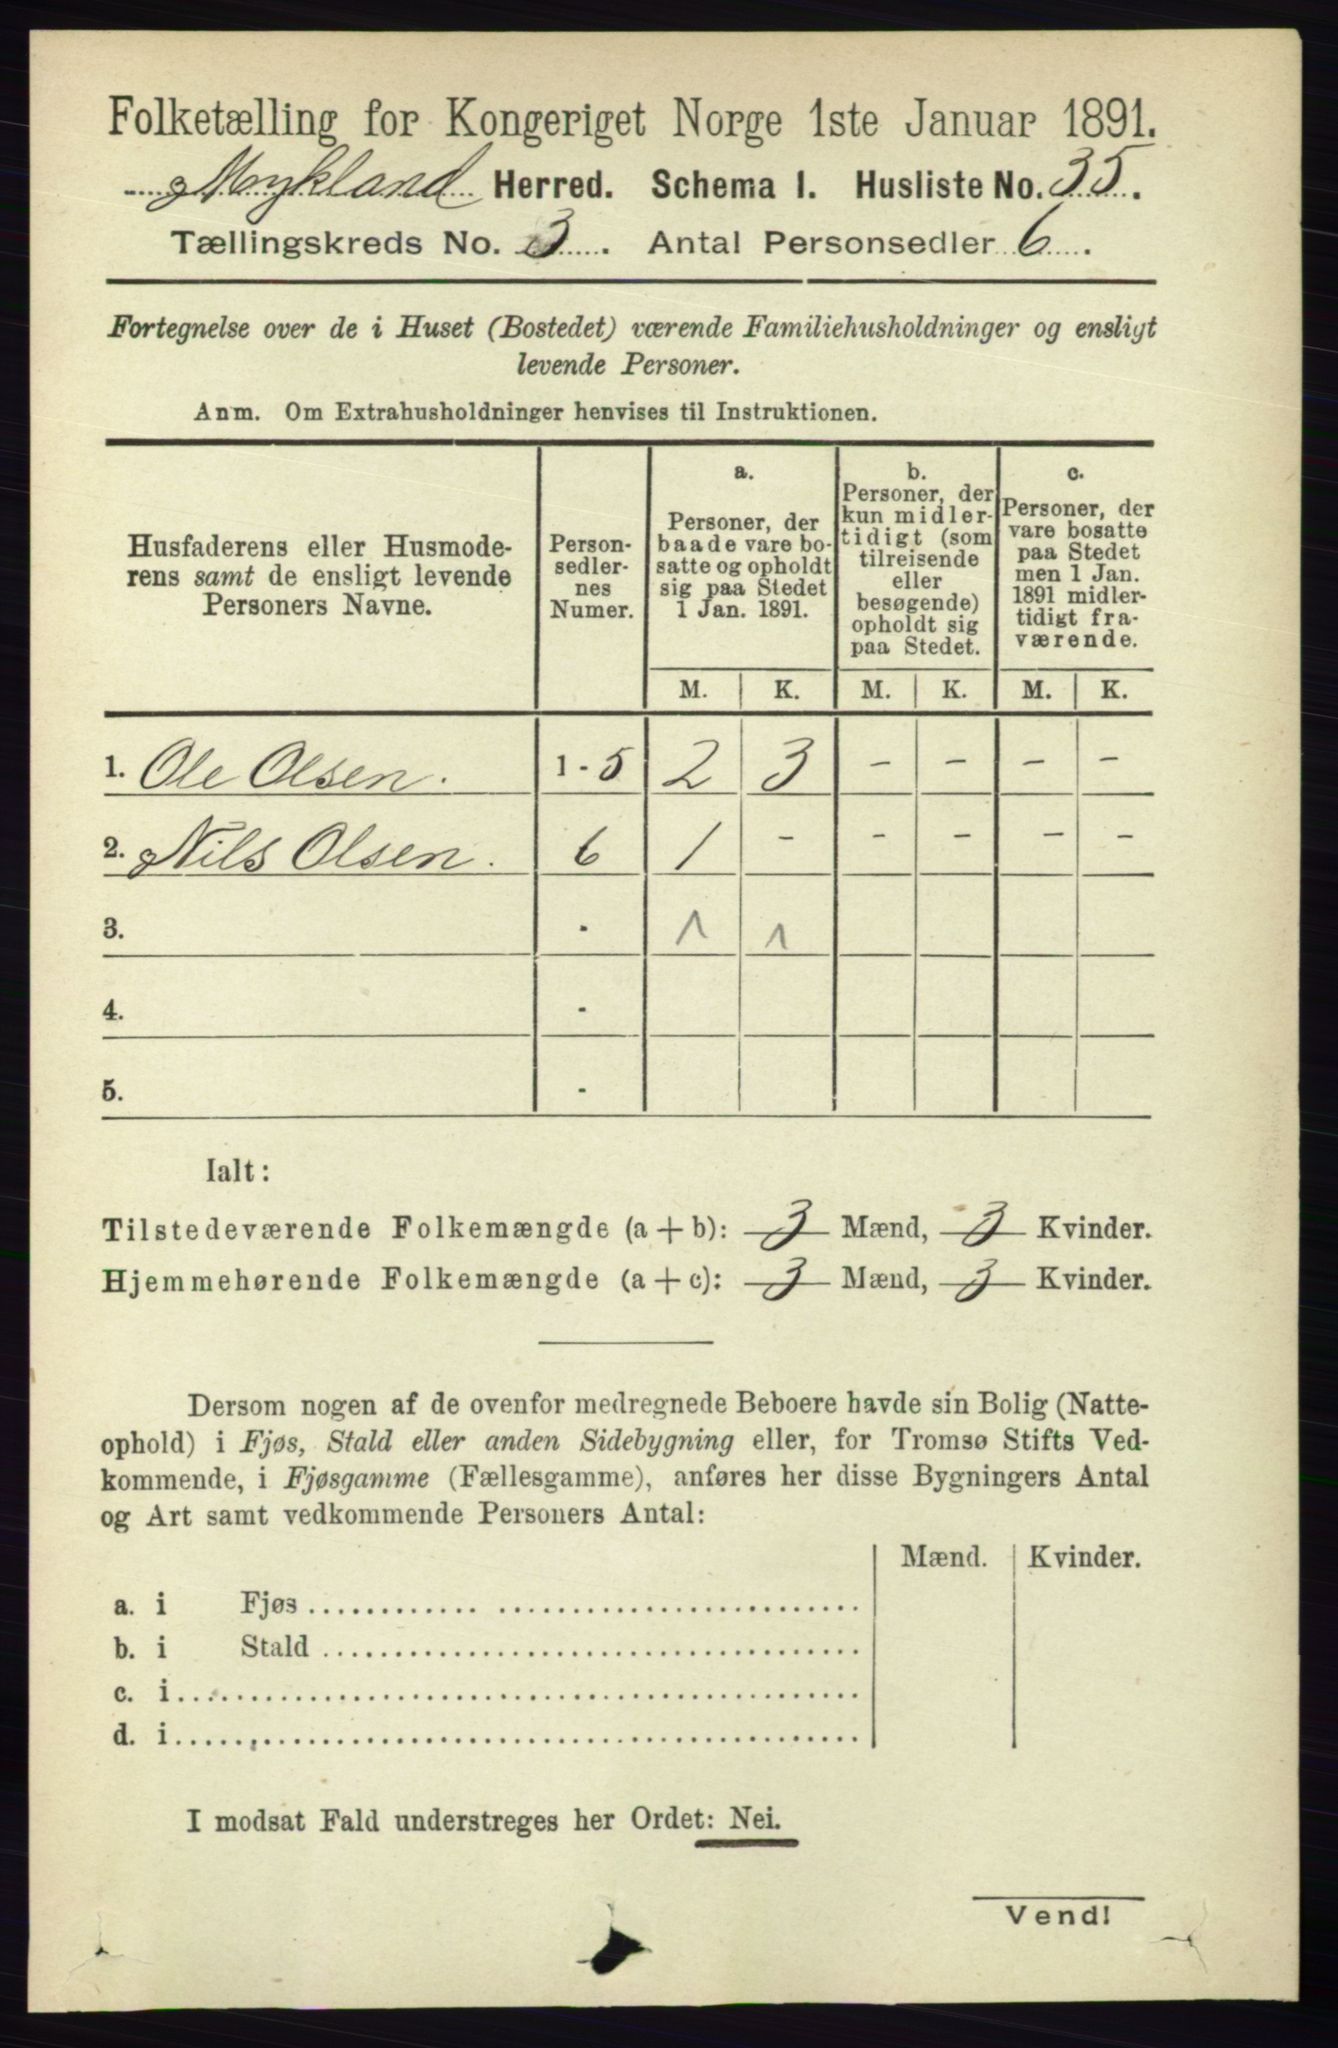 Folketælling for Kongeriget Norge 1ste Januar 1891.
Mykland Herred. Schema I. Husliste No. 35.
Tællingskreds No. 3. Antal Personsedler 6.
Fortegnelse over de i Huset (Bostedet) værende Familiehusholdninger og ensligt
levende Personer.
Anm. Om Extrahusholdninger henvises til Instruktionen.
Husfaderens eller Husmode-
rens samt de ensligt levende
Personers Navne.
Person-
sedler-
nes
Numer.
a.
Personer, der
baade vare bo-
satte og opholdt
sig paa Stedet
1 Jan. 1891.
b.
Personer, der
kun midler-
tidigt (som
tilreisende
eller
besøgende)
opholdt sig
paa Stedet.
c.
Personer, der
vare bosatte
paa Stedet
men 1 Jan.
1891 midler-
tidigt fra-
værende.
M. K. M. K. M. K.
1. Ole Olsen. 1-5 2 3 - - - -
2. Nils Olsen. 6 1 - - - - -
3. · 1 1
4. ·
5. ·
Ialt:
Tilstedeværende Folkemængde (a + b): 3 Mænd, 3 Kvinder.
Hjemmehørende Folkemængde (a + c): 3 Mænd, 3 Kvinder.
Dersom nogen af de ovenfor medregnede Beboere havde sin Bolig (Natte-
ophold) i Fjøs, Stald eller anden Sidebygning eller, for Tromsø Stifts Ved-
kommende, i Fjøsgamme (Fællesgamme), anføres her disse Bygningers Antal
og Art samt vedkommende Personers Antal:
Mænd. Kvinder.
a. i Fjøs
b. i Stald
c. i
d. i
I modsat Fald understreges her Ordet: Nei.
Vend!